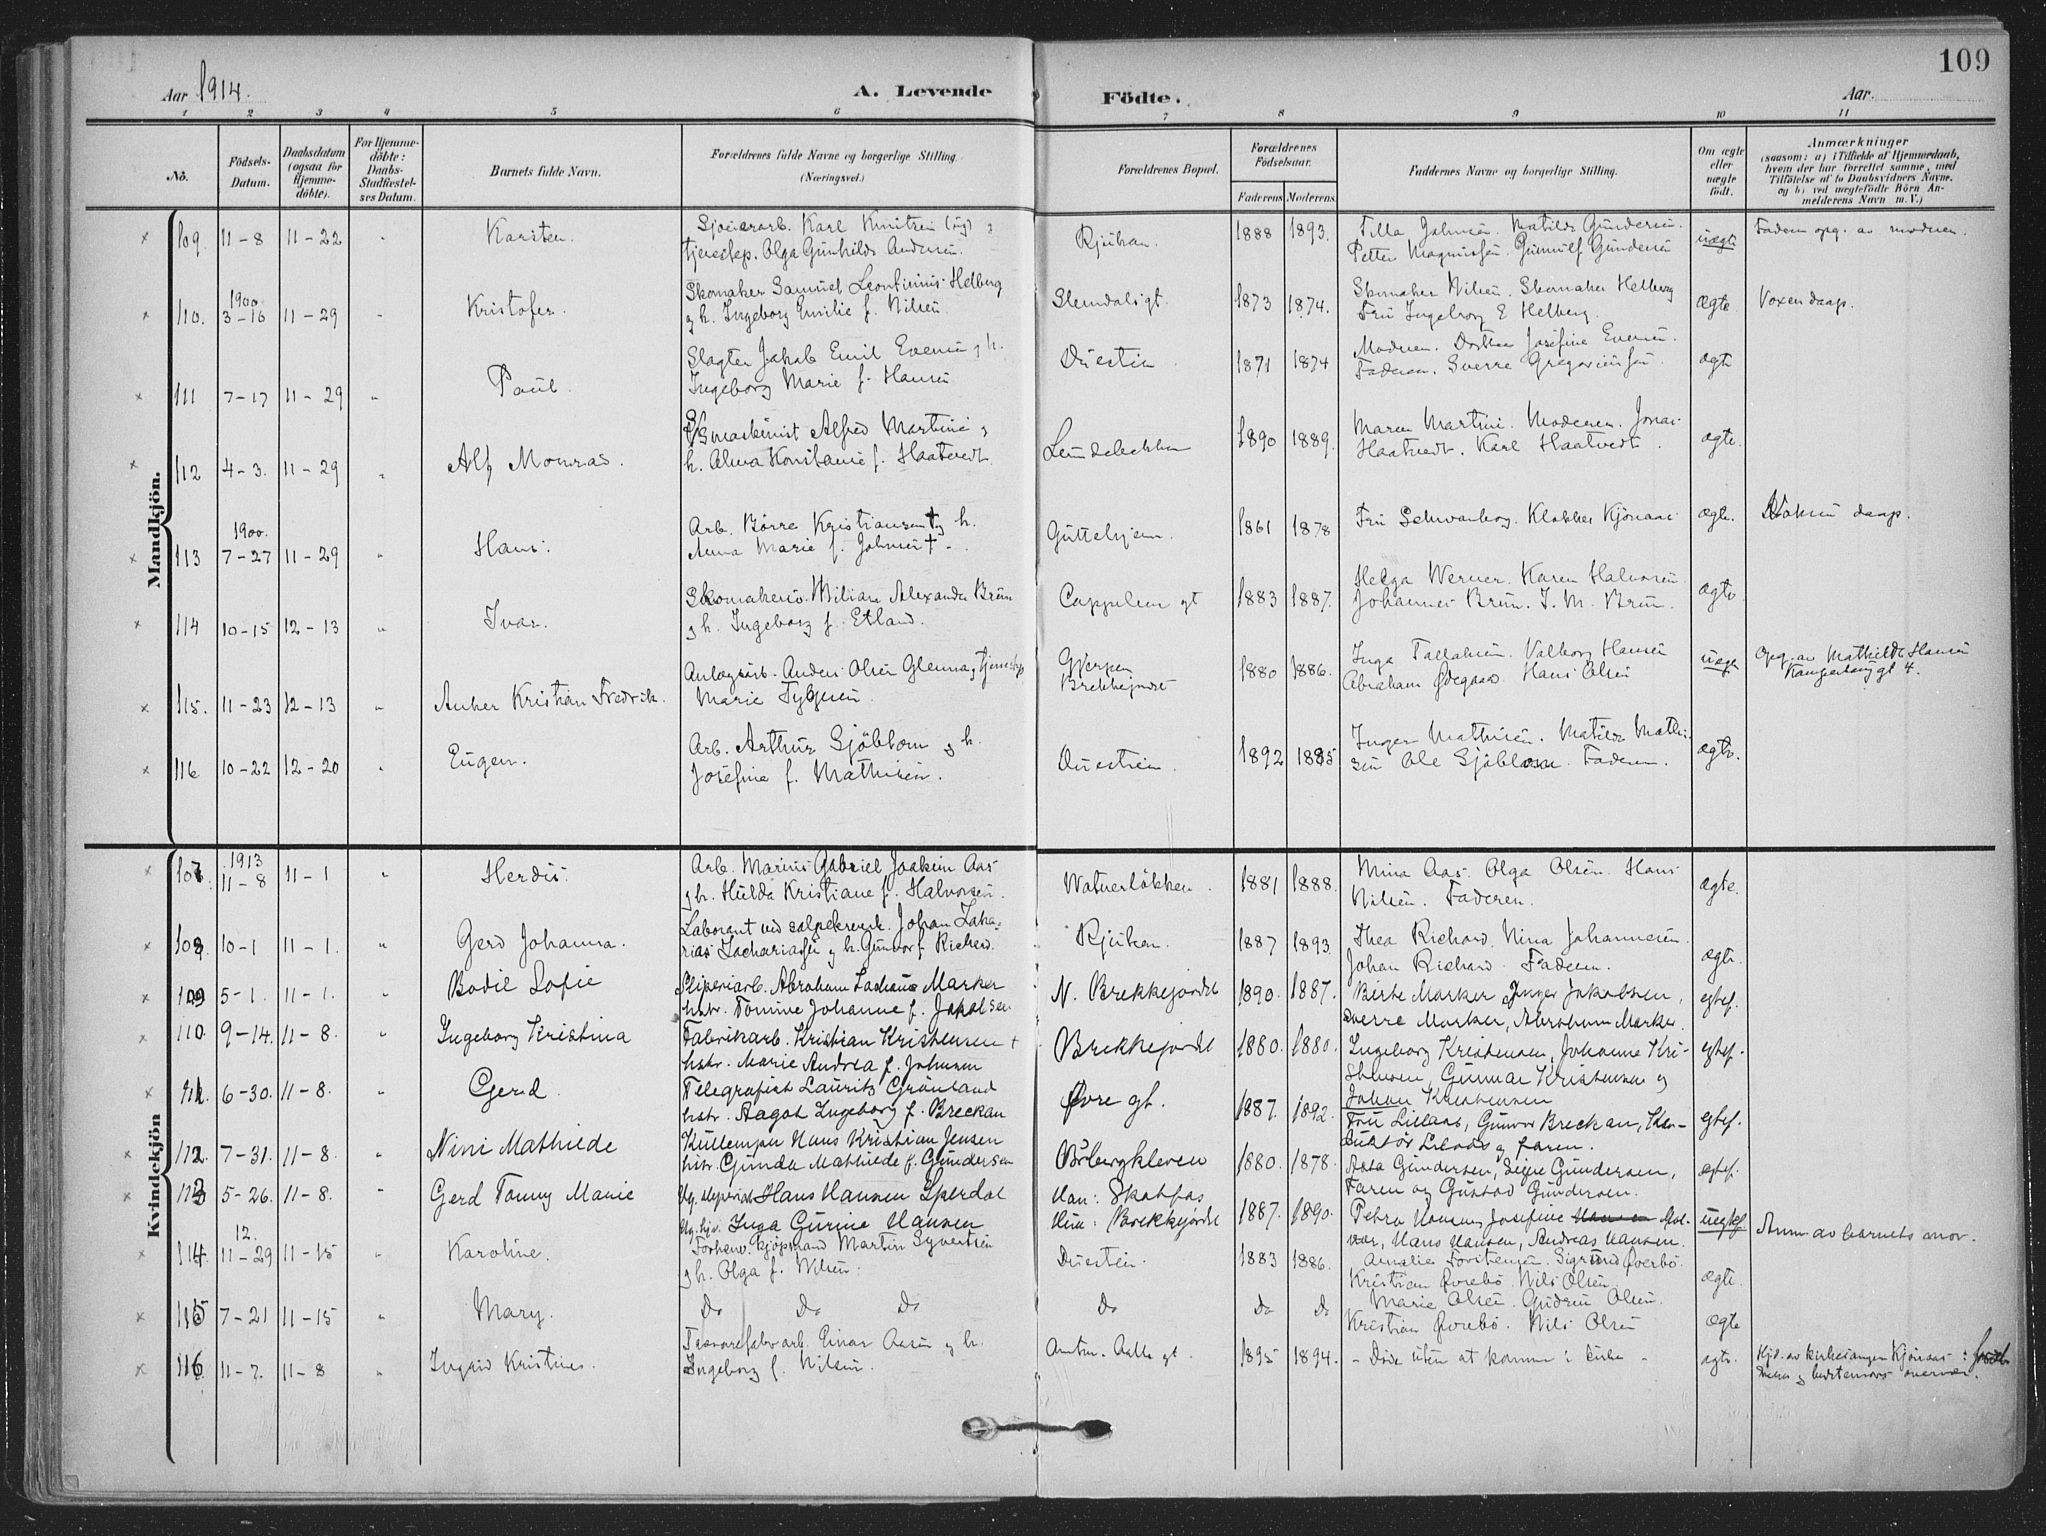 109
Aar 1914.
A. Levende
Födte.
Aar.
1 2 3 4 5 6 7 8 9 10 11
No.
Födsels-
Datum.
Daabsdatum
(ogsaa for
Hjemme-
döbte).
For Hjemme-
döbte:
Daabs-
Stadfæstel-
ses Datum.
Barnets fulde Navn.
Forældrenes fulde Navne og borgerlige Stilling
(Næringsvei.)
Forældrenes Bopæl.
Forældrenes
Födselsaar.
Faderens Moderens
Faddernes Navne og borgerlige Stilling.
Om ægte
eller
uægte
födt.
Anmærkninger
(saasom: a) i Tilfælde af Hjemmedaab,
hvem der har forrettet samme, med
Tilföielse af to Daabsvidners Navne,
og b) ved uegtefödte Börn An-
melderens Navn m. V.)
Mandkjön.
109. 11-8 11-22 Karsten.
arb. Karl Knutsen (ug) g
tjenestep. Olga Gunhilds Andersen.
Rjukan. 1888 1893.
Tilla Johnsen. Matilde Gundersen.
Petter Magnussen. Gunnulf Gundersen
uægte
Faderen opg. av moderen.
110. 1900 3-16 11-29 Kristofer.
Skomaker Samuel Leontinius Helberg
g h. Ingeborg Emilie f. Nilsen.
1873 1874.
Skomaker Nilsen. Skomaker Helberg
Fru Ingeborg E Helberg.
ægte
Voxen daap.
111 7-17 11-29 Paul.
Slagter Jakob Emil Evensen g h.
Ingeborg Marie f. Hansen
Duestien 1871 1874
Moderen. Dorthea Josefine Evensen.
Faderen. Sverre Gregoriussen
ægte
112 4-3. 11-29 Alf Monrad.
maskinist Alfred Martini g
h. Alma Konstanse f. Haatvedt.
Lundebakken 1890 1889.
Maren Martini. Moderen. Jonas
Haatvedt. Karl Haatvedt.
ægte.
113 1900. 7-27 11-29 Hans.
Arb. Börre Kristiansen † g h.
Anna Marie f. Johnsen †.
Guttehjem. 1861 1878
Fru Schwanborg. Klokker Kjönaas
ægte.
Voksen daap.
114 10-15 12-13 Ivar.
Skomakersv. Wiliam Alexander Brun
g h. Ingeborg f. Etland.
Cappelens gt 1883 1887.
Helga Werner. Karen Halvorsen.
Johannes Brun. J. M. Brun.
ægte
115. 11-23 12-13 Anker Kristian Fredrik.
Anlægsarb. Anders Olsen Glenna, g tjenestep
Marie
Gjerpen
Brekkejordet
1880 1886.
Inga Tallaksen. Valborg Hansen
Abraham Ødegaard. Hans Olsen
uægte
Opg. av Mathilde Hansen
gt 4.
116 10-22 12-20 Eugen.
Arb. Arthur Sjöblom g h.
Josefine f. Mathisen.
Duestien. 1892 1885
Inger Mathisen. Matilde Mathi-
sen Ole Sjöblom. Faderen.
ægte.
Kvindekjön
107. 1913 11-8 11-1 Herdis.
Arb. Marius Gabriel Joakim Aas
g h. Hulda Kristiane f. Halvorsen.
Watnerlökken. 1881 1888.
Mina Aas. Olga Olsen. Hans
Nilsen. Faderen.
ægte.
108 10-1 11-1. Gerd Johanna.
Laborant ved salpeterverk. Johan Zaka-
rias Zachariassen g h. Gunvor f. Richard.
Rjukan. 1887 1893
Thea Richard. Nina Johannesen.
Johan Richard. Faderen.
ægte.
109 5-1. 11-1. Bodil Sofie
Sliperiarb. Abraham Zacharias Marker
hstr. Tomine Johanne f. Jakobsen
N. Brekkejordet 1890. 1887.
Birte Marker, Inger Jakobsen,
Sverre Marker, Abraham Marker.
egtef.
110. 9-14. 11-8. Ingeborg Kristina
Fabrikarb. Kristian Kristensen †
hstr. Marie Andrea f. Johnsen
Brekkejordet 1880. 1880.
Ingeborg Kristensen, Johanne Kri-
stensen, Gunnar Kristensen og
Johan Kristensen
egtef.
111. 6-30. 11-8. Gerd.
Telegrafist Lauritz Grönland
hstr. Aagot Ingeborg f. Breckan
Øvre gt. 1887. 1892.
Fru Lilaas, Gunvor Breckan, Kon-
duktör Lilaas og faren.
egtef.
112. 7-31. 11-8. Nini Mathilde
Kullemper Hans Kristian Jensen
hstr. Gunda Mathilde f. Gundersen
Bölebergkleven 1880. 1878.
Asta Gundersen, Signe Gundersen,
Faren og Gustav Gundersen.
egtef.
113 5-26. 11-8. Gerd Tonny Marie
Ug. Hans Hansen Sperdal
Ug. hjv. Inga Gurine Hansen
Han: Skotfos
Hun: Brekkejordet
1887. 1890.
Petra Hansen, Josefine
Hans Hansen, Andreas Hansen.
uegtef
Anm. av barnets mor.
114. 12. 11-29 11-15 Karoline.
Forhenv. kjöpmand Martin Syvertsen
g h. Olga f. Nilsen.
Duestien. 1883 1886.
Amalie Torstensen. Sigrund Øverbö.
Kristian Øverbö. Nils Olsen.
ægte.
115 7-21 11-15 Mary.
Do Do Do Do Do Do
Marie Olsen. Gudrun Olsen.
Kristian Øverbö. Nils Olsen
ægte
116 11-7. 11-8 Ingrid Kristine.
arb. Einar Aasen g h.
Ingeborg f. Nilsen.
Amtm. Aalls gt. 1895 1894.
- Döde uten at komme i kirke -
ægte.
Hjd. av kirkesanger Kjönaas i